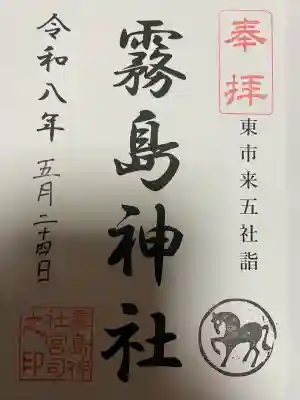 奉拝
東市来五社詣
霧島神社
令和八年 五月二十四日
霧島神
社宮司
之印